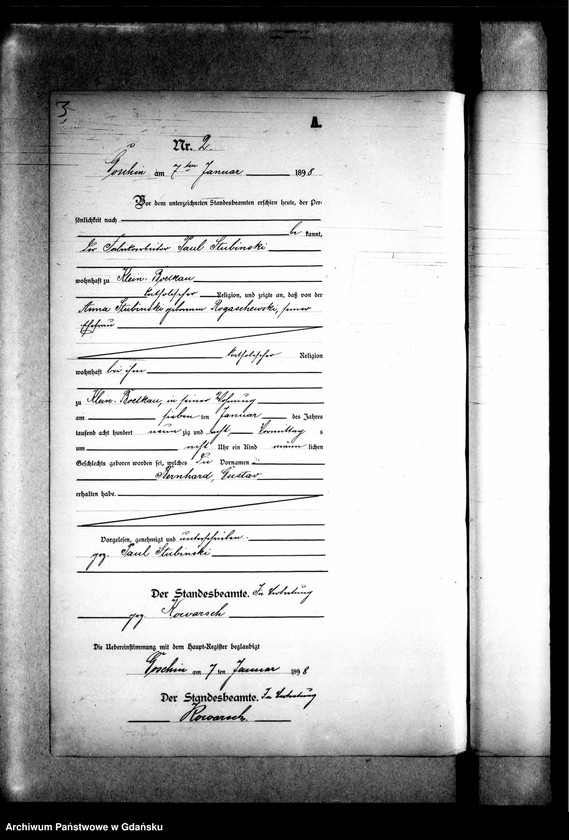 3.
A.
Nr. 2.
Goschin am 7ten Januar 1898
Vor dem unterzeichneten Standesbeamten erschien heute, der Per-
sönlichkeit nach
be kannt,
der Fabrikarbeiter Paul Stubinski
wohnhaft zu Klein-Boelkau
katholischer Religion, und zeigte an, daß von der
Anna Stubinski geborenen Rogaschewski, seiner
Ehefrau
katholischer Religion
wohnhaft bei ihm
zu Klein-Boelkau, in seiner Wohnung
am sieben ten Januar des Jahres
tausend acht hundert neun zig und acht, Vormittag s
um acht Uhr ein Kind männ lichen
Geschlechts geboren worden sei, welches die Vornamen
Bernhard, Gustav
erhalten habe.
Vorgelesen, genehmigt und unterschrieben.
gez. Paul Stubinski
Der Standesbeamte. In Vertretung
gez Kowarsch
Die Uebereinstimmung mit dem Haupt-Register beglaubigt
Goschin am 7 ten Januar 1898
Der Standesbeamte. In Vertretung
Kowarsch.
Archiwum Państwowe w Gdańsku